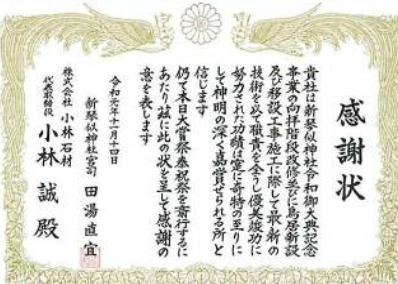 感謝状
貴社は新琴似神社令和御大典記念
事業の向拝階段改修並びに鳥居新設
及び移設工事施工に際して最新の
技術を以て職責を全うし優美竣功に
努力された功績は寔に奇特の至りに
して神明の深く嘉賞せられる所と
信じます
仍て本日大嘗祭奉祝祭を斎行するに
あたり茲に此の状を呈して感謝の
意を表します
令和元年十一月十四日
新琴似神社宮司 田湯直宜
株式会社 小林石材
代表取締役 小林誠殿